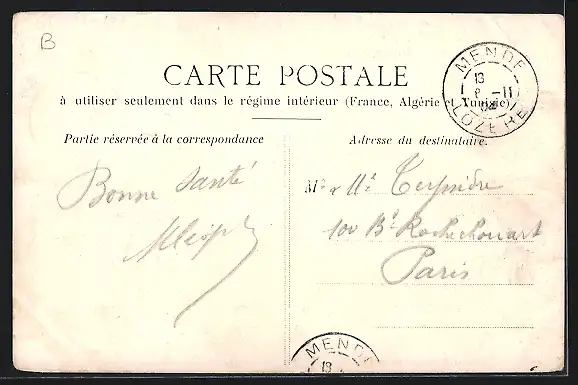 B
CARTE POSTALE
à utiliser seulement dans le régime intérieur (France, Algérie et Tunisie)
Partie réservée à la correspondance
Adresse du destinataire.
MENDE
13
8 -11
08
LOZERE
Bonne santé
Mr & Me
100 Bd Rochechouart
Paris
MENDE
13